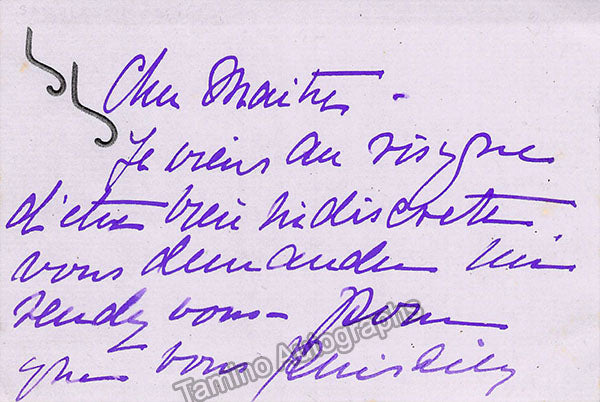 Cher Maitre -
Je viens au risque
d'etre bien indiscrete
vous demander un
rendez vous - pour
que vous puissiez
Tamino Autographs